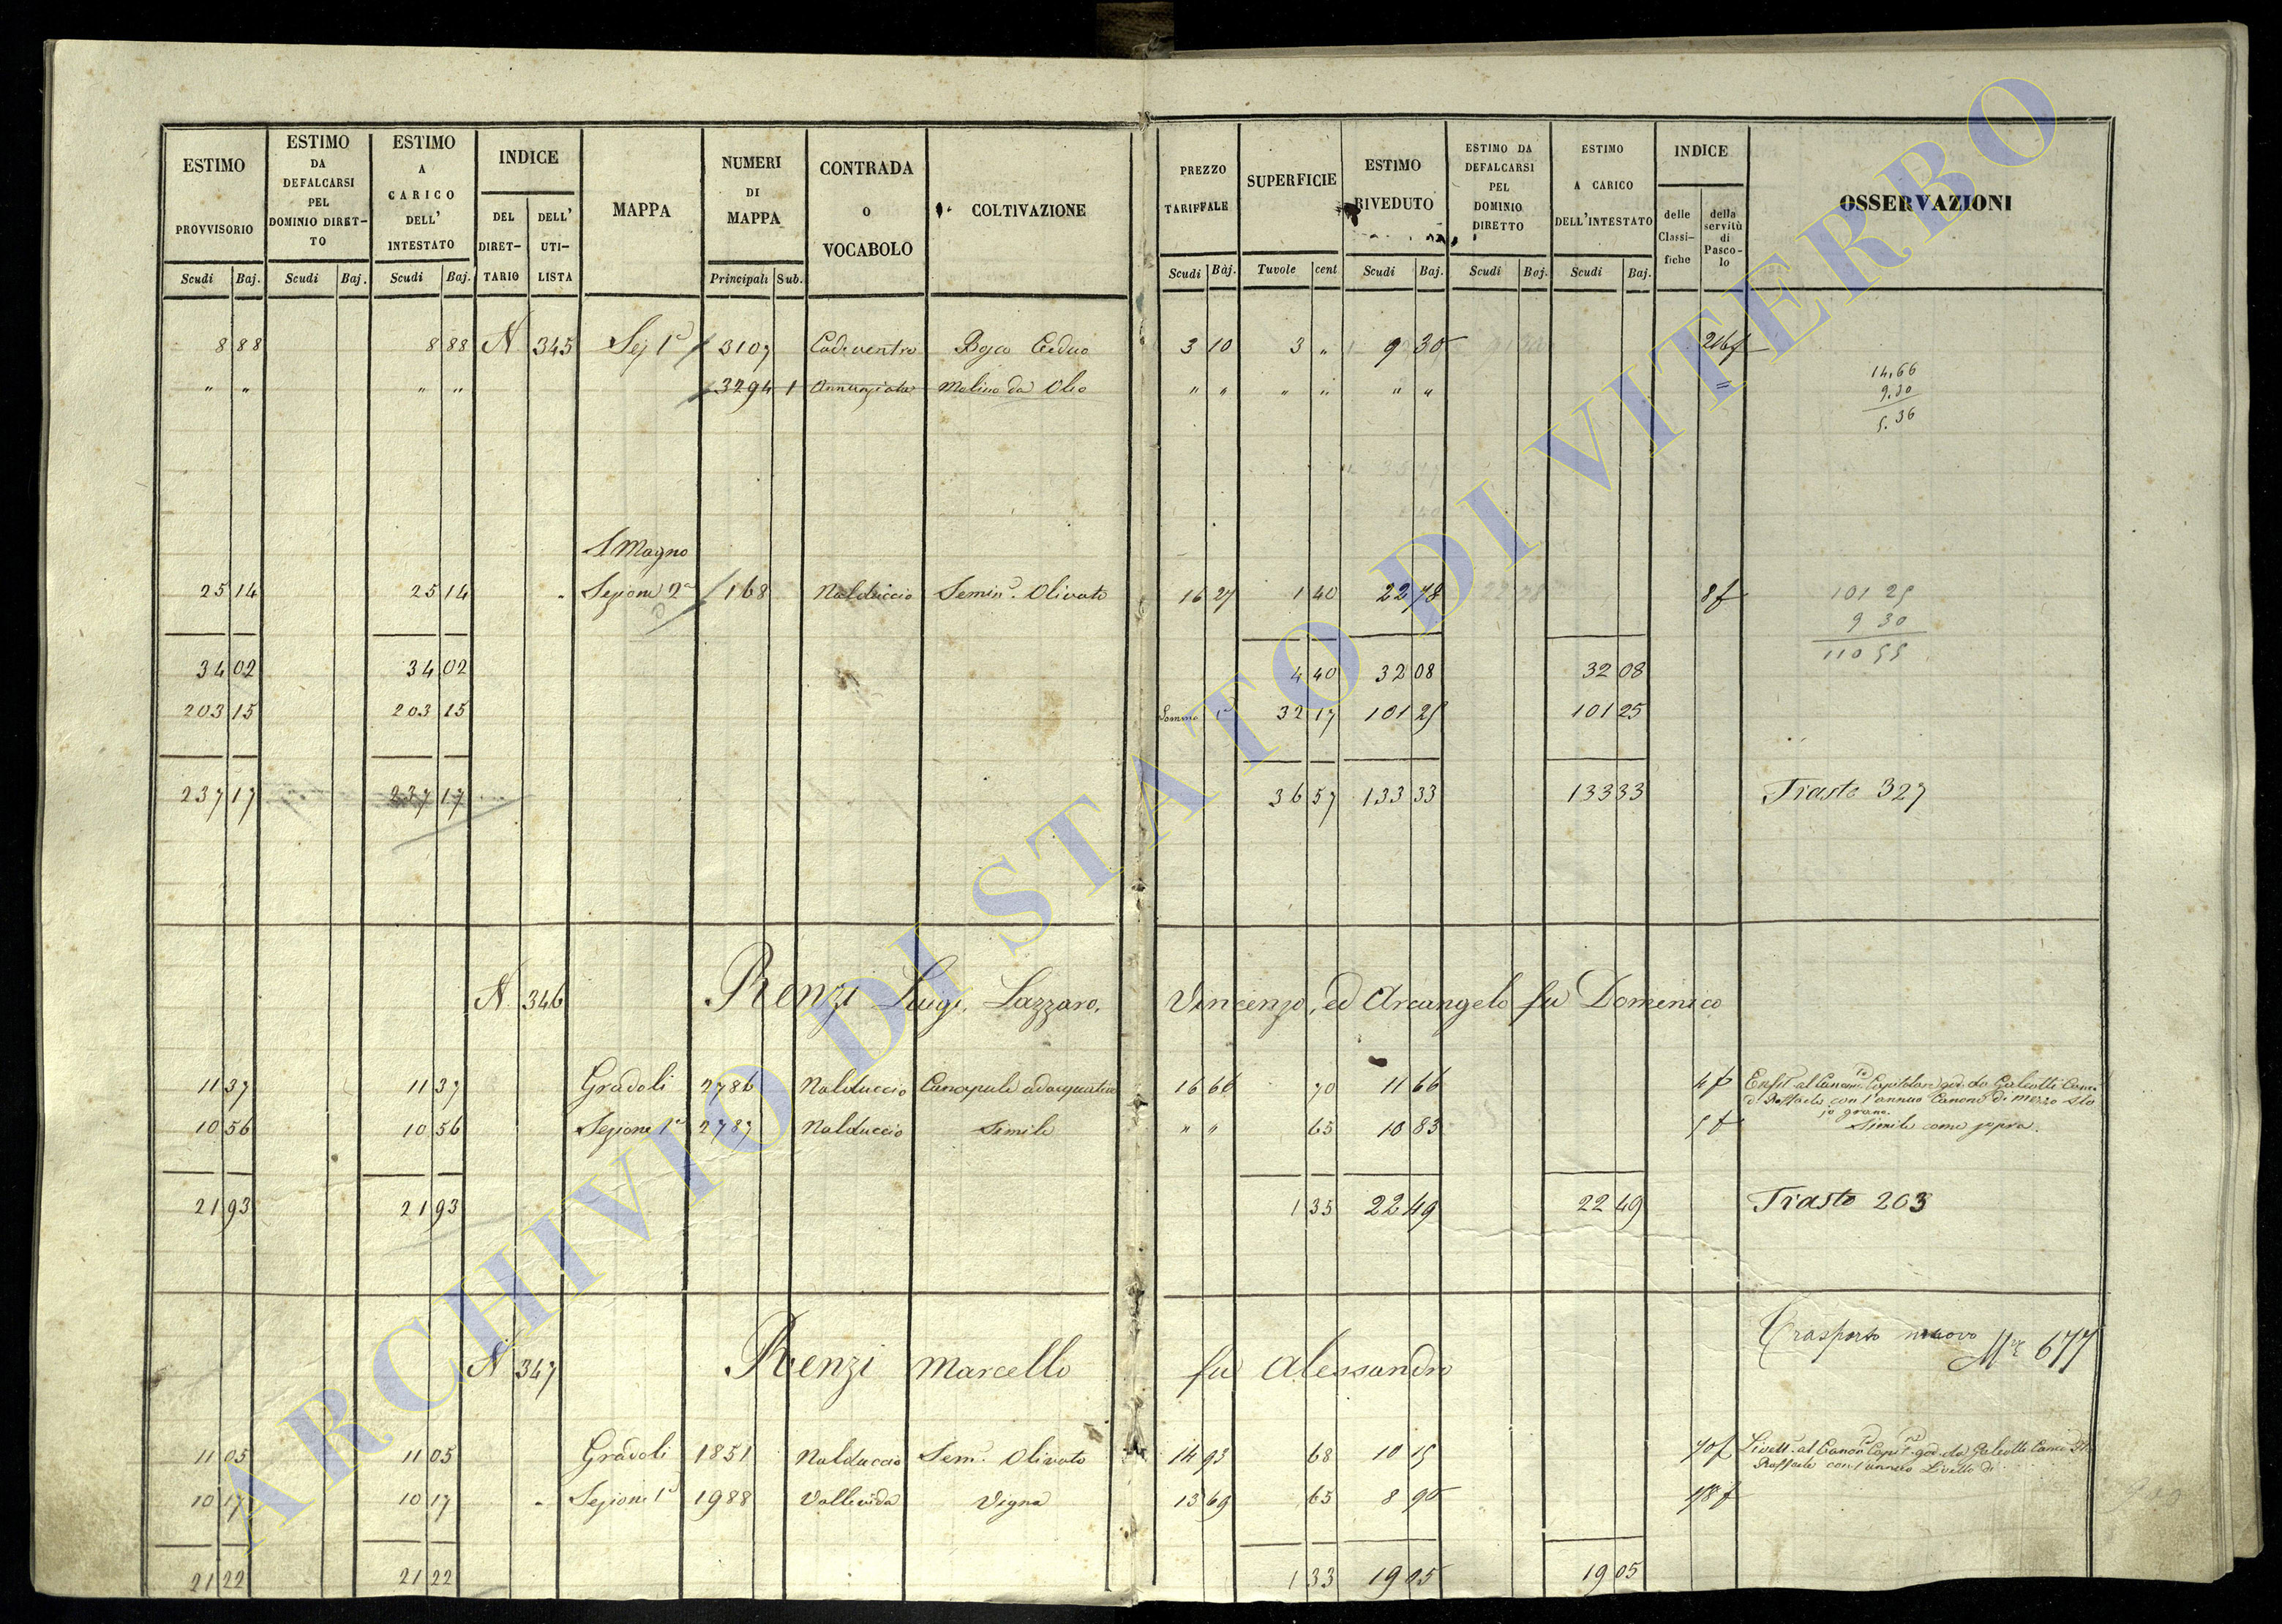 ESTIMO PROVVISORIO Scudi Baj.
ESTIMO DA DEFALCARSI PEL DOMINIO DIRET-TO Scudi Baj.
ESTIMO A CARICO DELL' INTESTATO Scudi Baj.
INDICE DEL DIRET-TARIO DELL' UTI-LISTA
MAPPA
NUMERI DI MAPPA Principali Sub.
CONTRADA O VOCABOLO
COLTIVAZIONE
PREZZO TARIFFALE Scudi Baj.
SUPERFICIE Tavole cent
ESTIMO RIVEDUTO Scudi Baj.
ESTIMO DA DEFALCARSI PEL DOMINIO DIRETTO Scudi Baj.
ESTIMO A CARICO DELL'INTESTATO Scudi Baj.
INDICE delle Classi-fiche della servitù di Pasco-lo
OSSERVAZIONI
8 88 8 88 N 345 Sez 1a 3107 3 10 3 " 9 30
" " " " 3294 1 Annunziata Molino da Olio " " " " " " =
14,66
9.30
5.36
S Magno
25 14 25 14 Sezione 2a 168 Nalduccio Semin.o Olivato 16 27 1 40 22 78 8f
101 25
9 30
110 55
34 02 34 02 4 40 32 08 32 08
203 15 203 15 Somma 32 17 101 25 101 25
237 17 237 17 36 57 133 33 133 33 Trasto 327
N 346 Renzi Luigi, Lazzaro, Vincenzo, ed Arcangelo fu Domenico
11 37 11 37 Gradoli 2786 Nalduccio 16 66 70 11 66 4f
con l'annuo Canone di mezzo sta
jo grano.
10 56 10 56 Sezione 1a 2787 Nalduccio Simile " " 65 10 83 5f Simile come sopra.
21 93 21 93 1 35 22 49 22 49 Trasto 203
Trasporto nuovo
677
N 347 Renzi Marcello fu Alessandro
11 05 11 05 Gradoli 1851 Nalduccio Sem.o Olivato 14 93 68 10 15 70f
Raffaele con l'annuo Livello di
10 17 10 17 Sezione 1a 1988 Vigna 13 69 65 8 90
21 22 21 22 1 33 19 05 19 05
ARCHIVIO DI STATO DI VITERBO